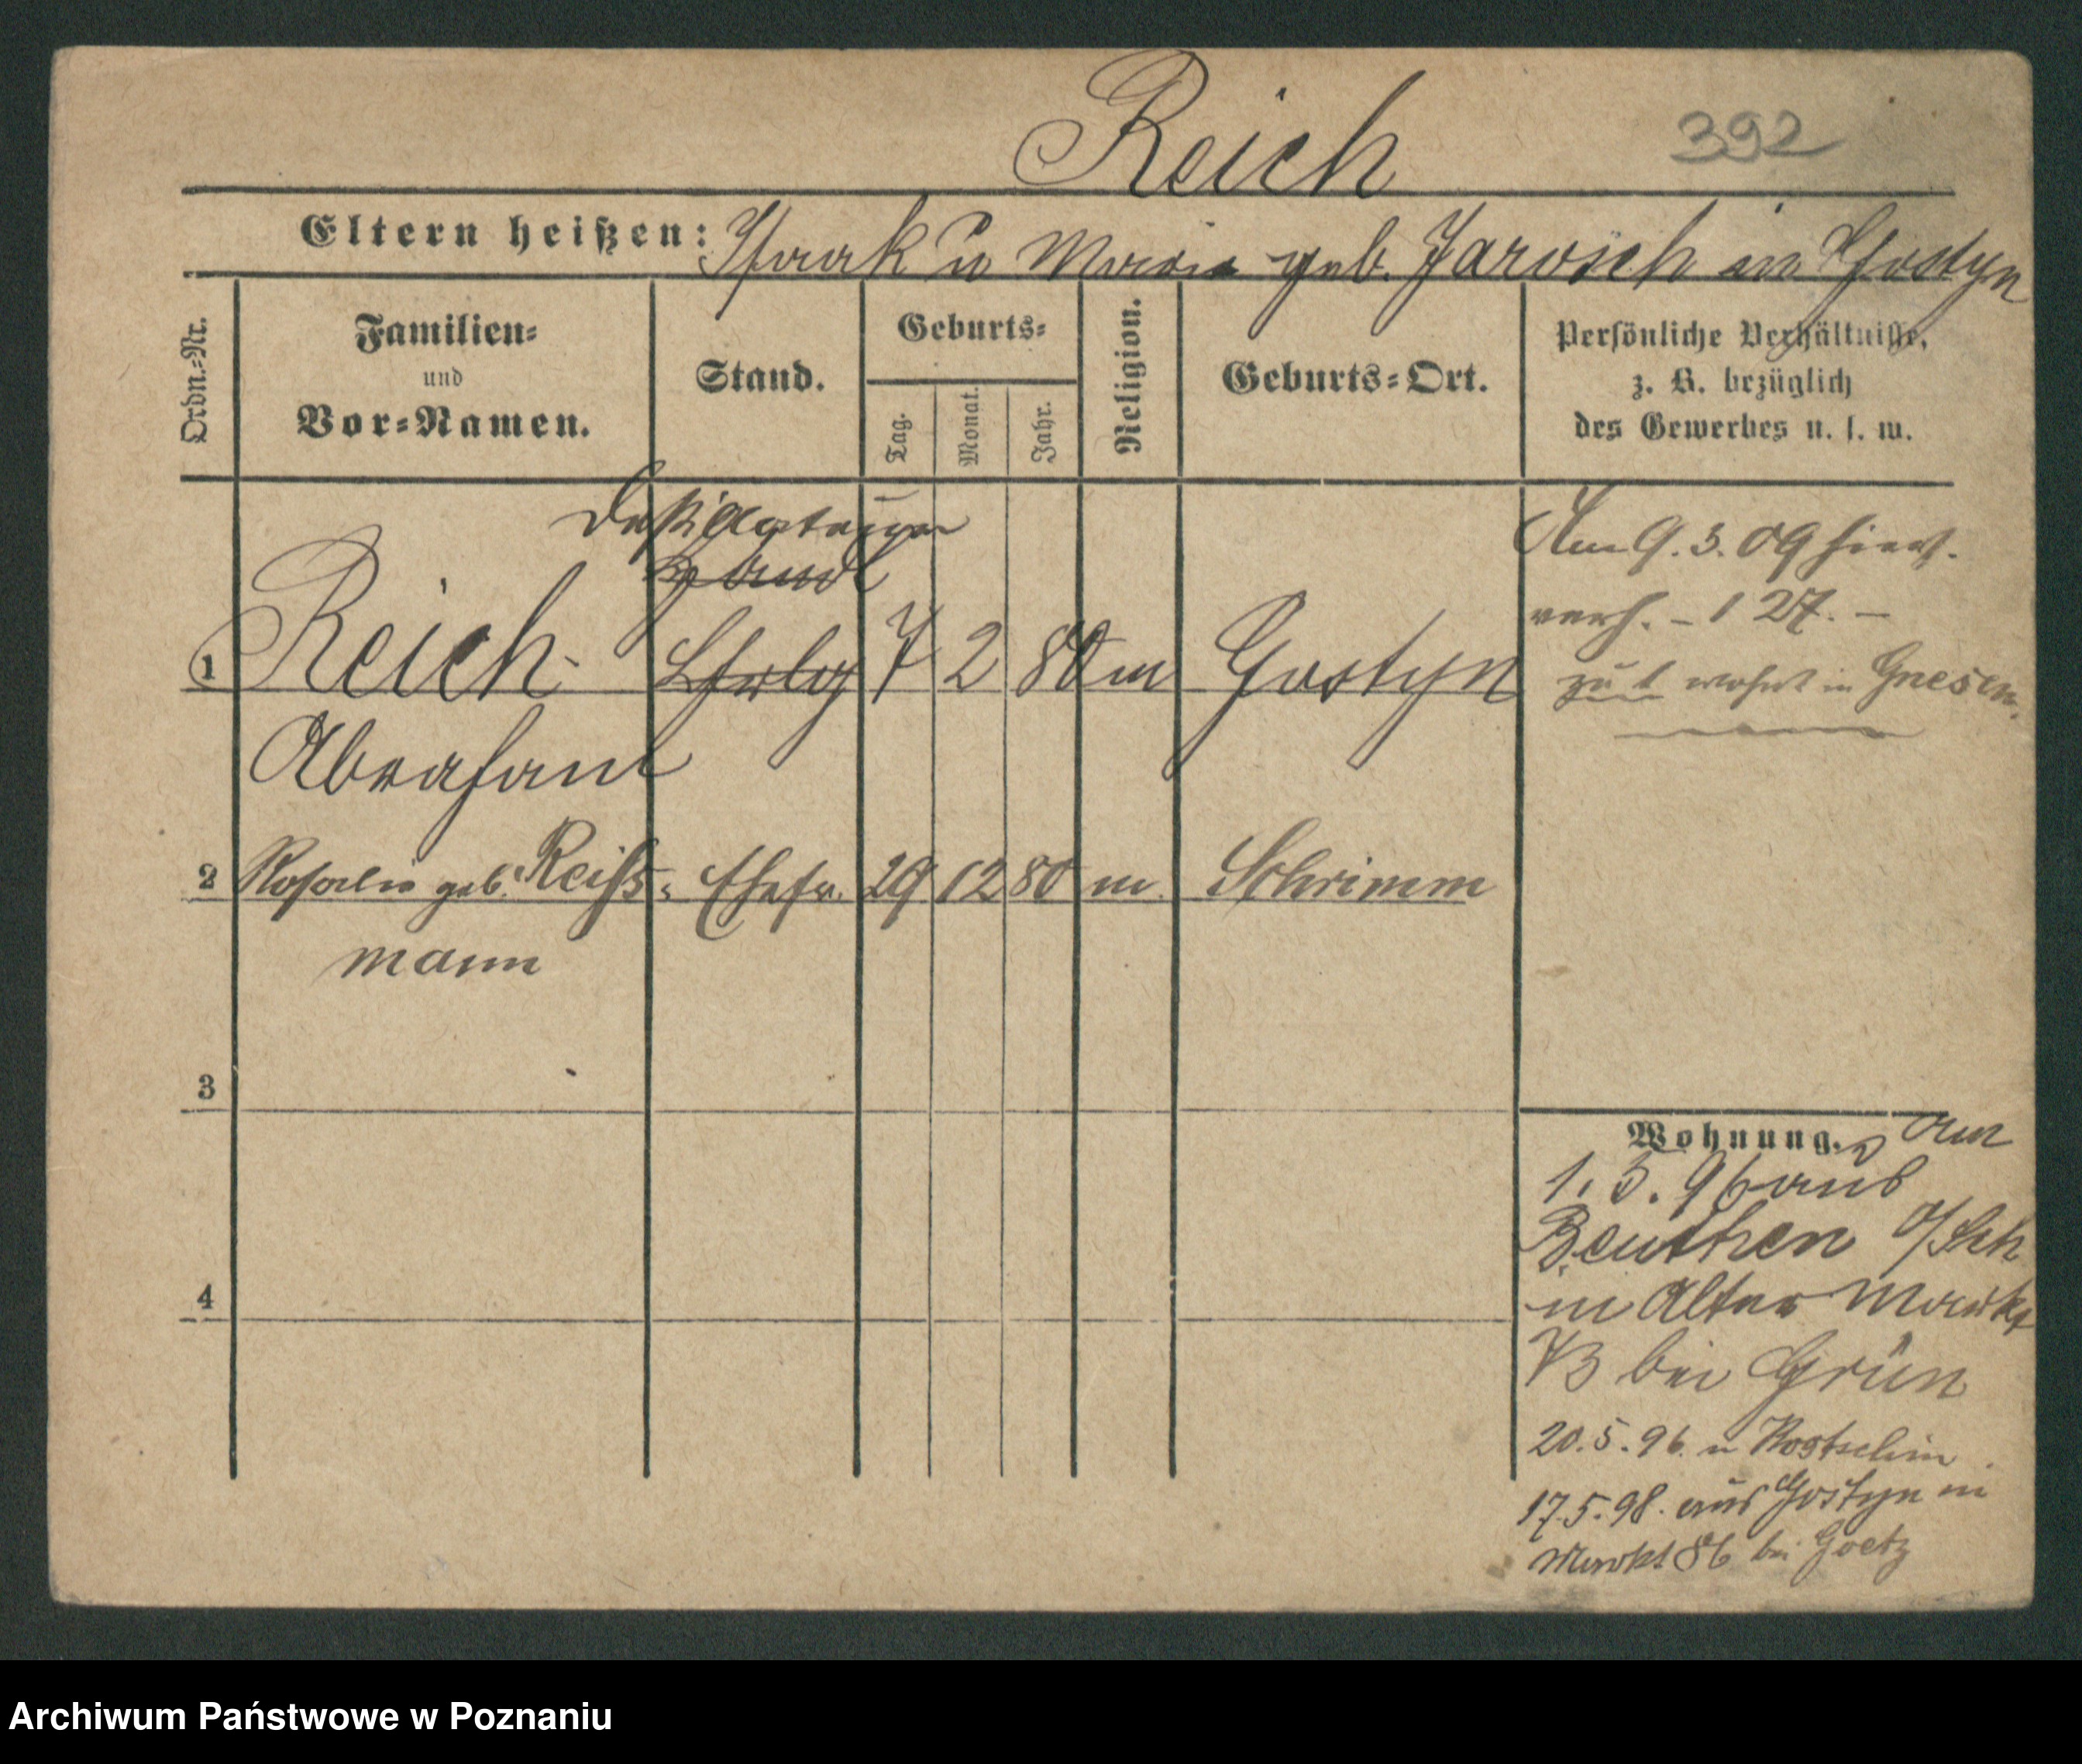 Reich 392
Eltern heißen: Isaak u Marie geb. Jarosch in Gostyn
Ordn.=Nr.
Familien=
und
Vor=Namen.
Stand.
Geburts=
Tag.
Monat.
Jahr.
Religion.
Geburts=Ort.
Persönliche Verhältnisse,
z. B. bezüglich
des Gewerbes u. s. w.
Destillateur
Handl
1 Reich Lehrlg 7 2 80 m Gostyn
Abraham
2 Rosalie geb. Reiss= Ehefr. 29 12 80 m. Schrimm
mann
3
4
Am 9.3.09 hier
verh. - 127. -
z. Zt wohnt in Gnesen.
Wohnung. Am
1.5.96 aus
Beuthen O/Sch
in Alter Markt
73 bei Grün
20.5.96. n Kostschin
17.5.98. aus Gostyn in
Markt 86 bei Goetz
Archiwum Państwowe w Poznaniu